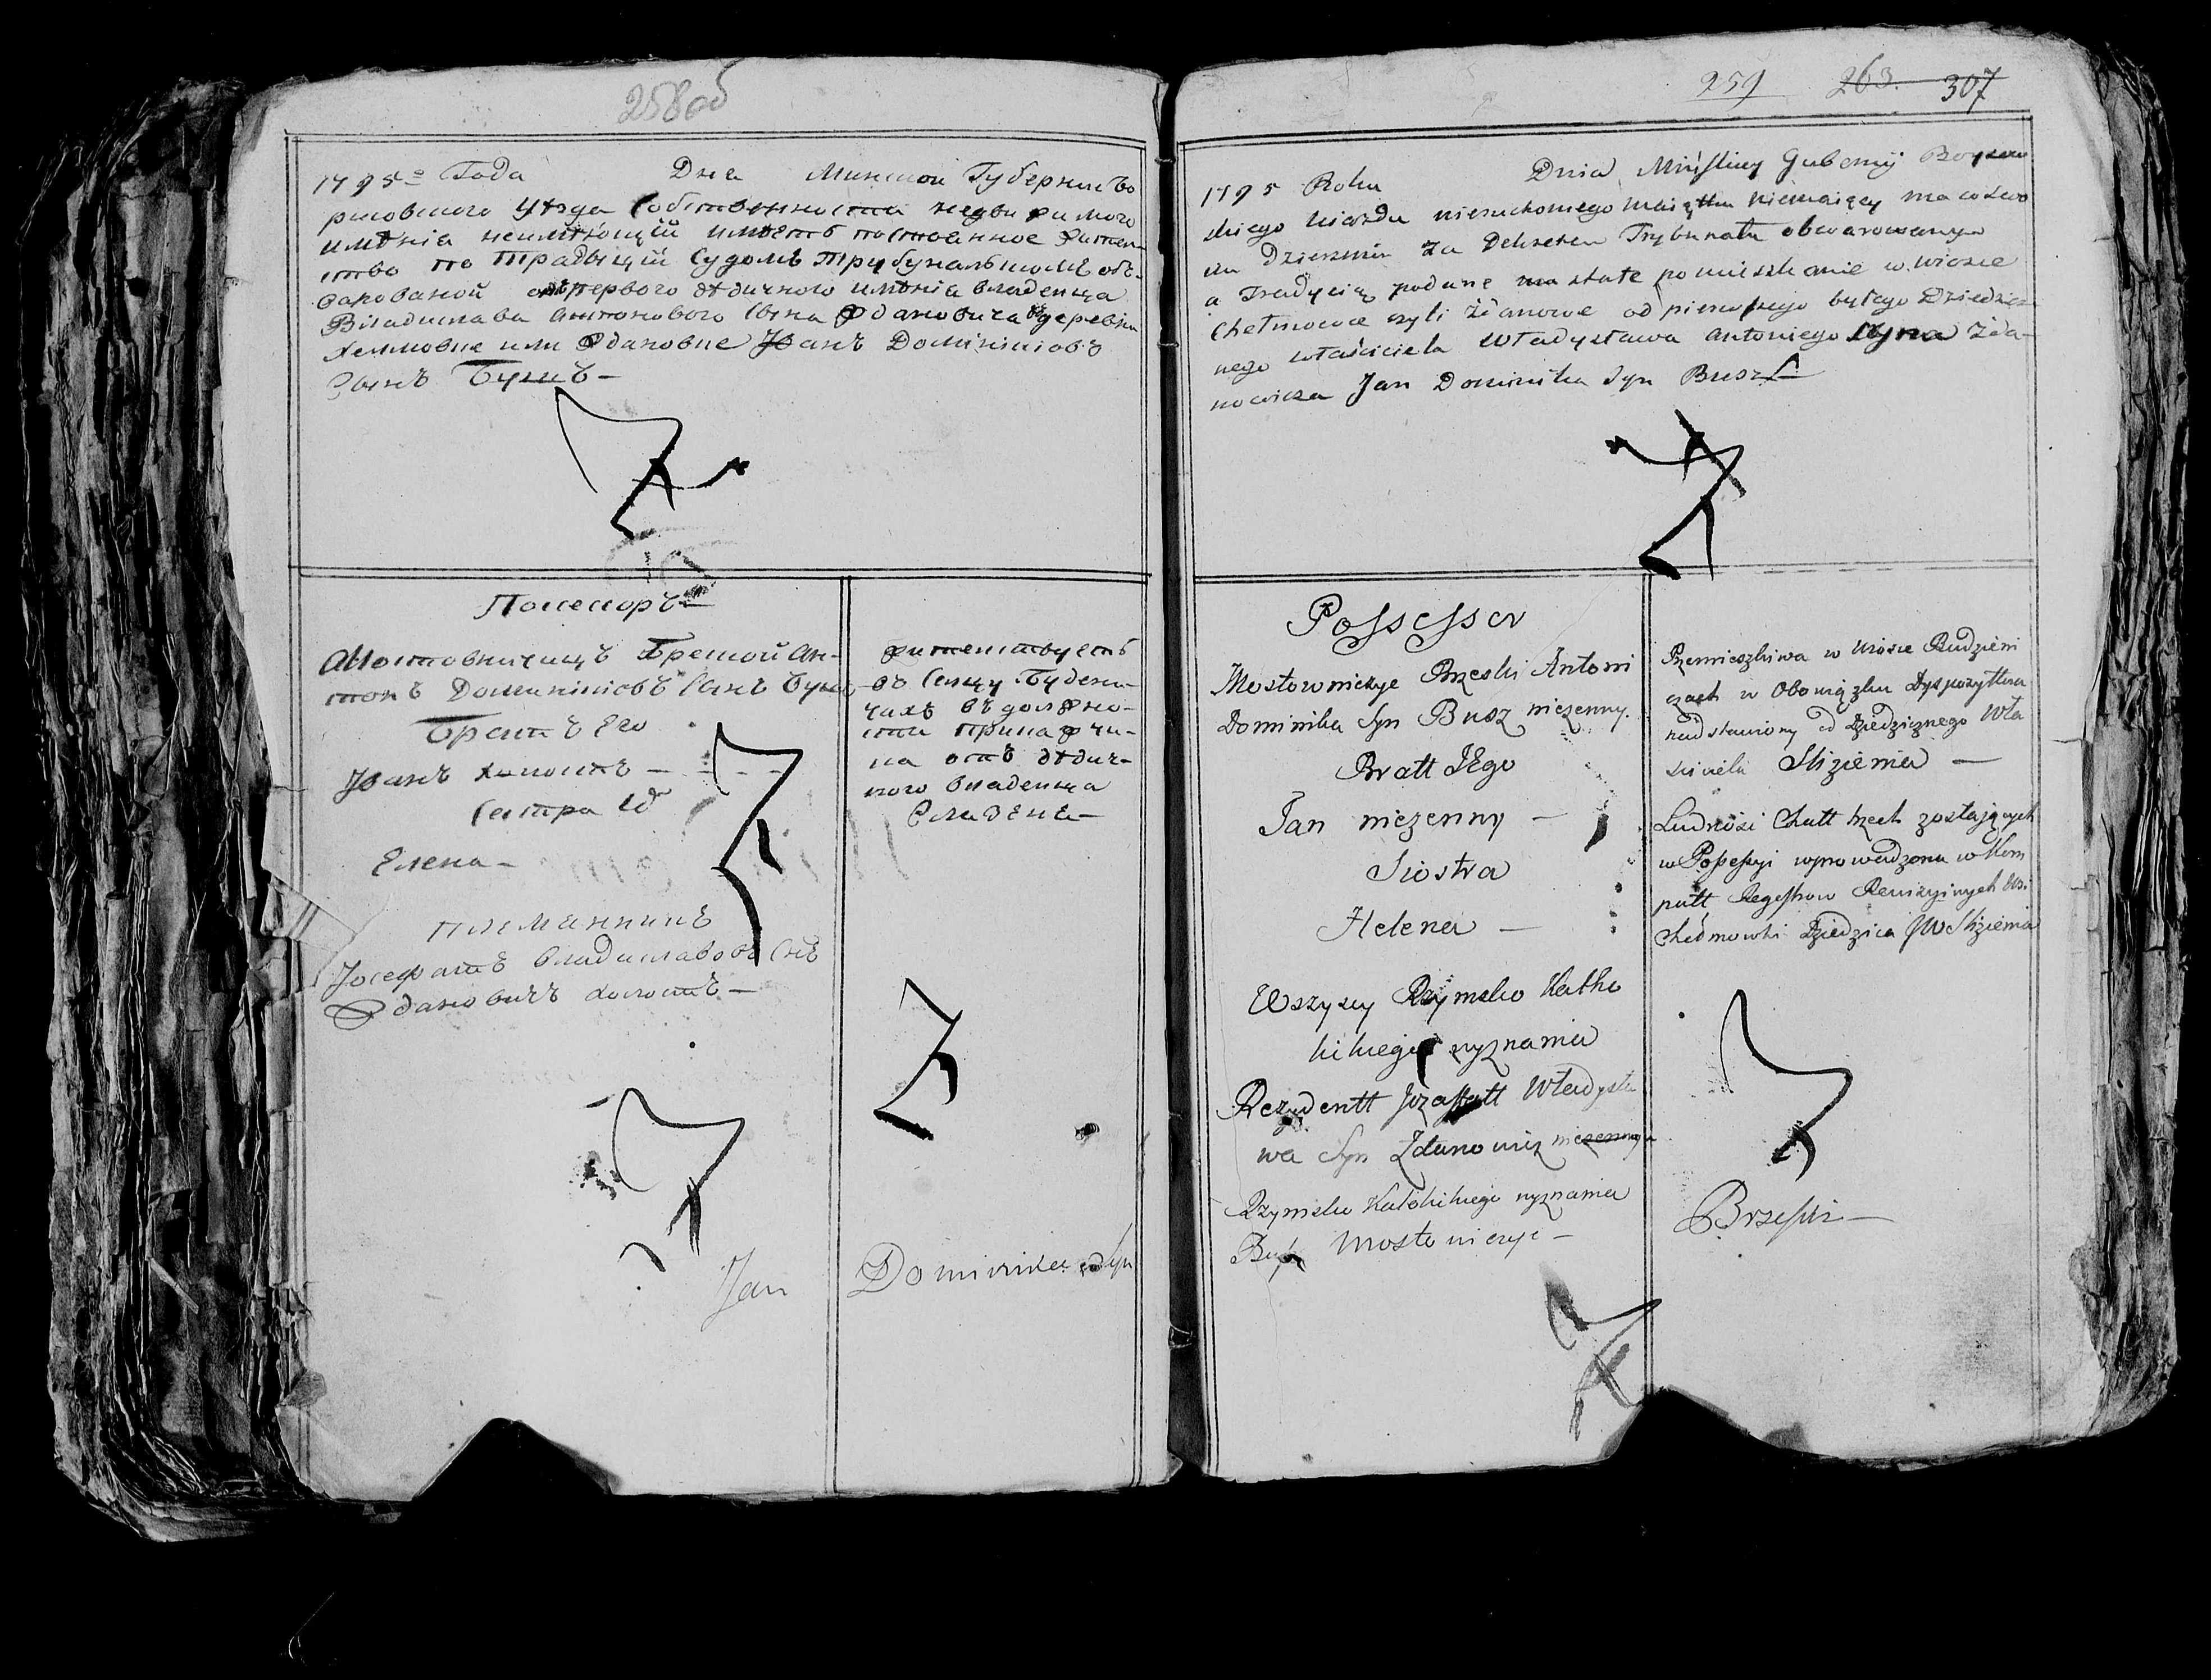 258об
1795º Года Дня Минской Губерніи Бо
рисовского Уѣзда Собственности недвижимого
имѣнія неимѣющій имѣетъ постоянное жител
ство по Традыцій Судомъ Трибунальномъ об
варованой отъ первого дѣдичного имѣнія владенца
Владислава Антонового сына Ждановича въ деревни
Хелмовце или Ждановце Иванъ Доминиковъ
Сынъ Бушъ —
Посесоръ
Мостовничицъ Брескій Ан-
тонъ Доминиковъ Сынъ Бушъ
Братъ Его
Иванъ холостъ —
Сестра Его
Елена —
Племянникъ
Іосефатъ Владиславовъ Снъ
Ждановичъ холостъ —
жителствуетъ
въ Селцу Будени-
чахъ въ должно-
сти
на отъ дѣдич-
ного владенца
Слизеня —
Jan Dominika Syn
259 263 307
1795 Roku Dnia Mińskiey Gubernij Borysow
skiego Uiazdu nieruchomego Maiątku niemaiący ma
za Dekretem Trybunatu obwarowanym
a Tradycią podane na stałe pomieszkanie w wiosce
Chełmowce czyli Żdanowce od pierwszego byłego Dziedzicz
nego właściciela Władysława Antoniego Syna Żda-
nowicza Jan Dominika Syn Busz
Possessor
Mostowniczyc Brzeski Antoni
Dominika Syn Busz nieżenny.
Bratt JEgo
Jan nieżenny —
Siostra
Helena —
Wszyscy Rzymsko Katho
likiego wyznania
Rezydentt Józaffatt Władysła
wa Syn Zdanowicz nieżenny
Rzymsko Katolikiego wyznania
Busz Mostowniczyc —
Przemieszkiwa w Wiosce Budzieni
czach w Obowiązku Dyspozytora
nadstawiony od Dziedzicznego Wła
ściciela Slizienia —
Ludności Chatt trzech zostających
w Possessyi wprowadzona w Kom
putt Regestrow Rewizyinych Wsi
Chełmowki Dziedzica JW Slizienia
Brzeski —